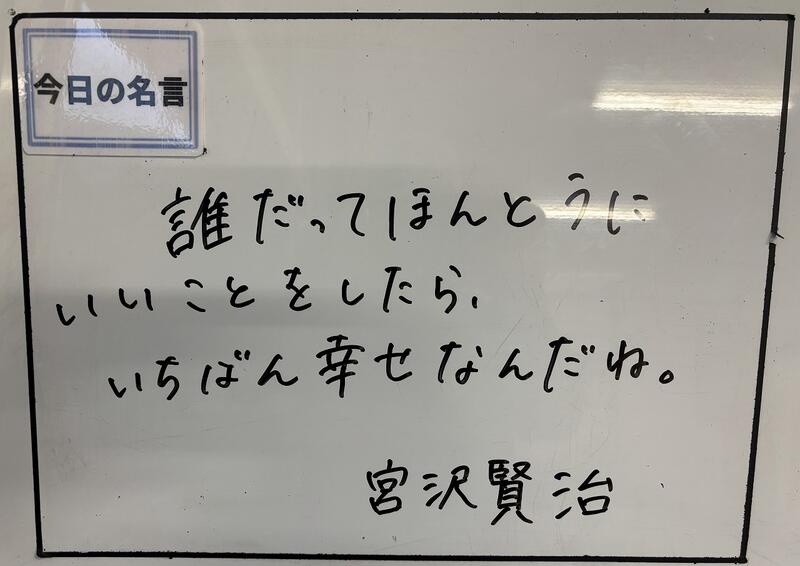 今日の名言
誰だってほんとうに
いいことをしたら、
いちばん幸せなんだね。
宮沢賢治